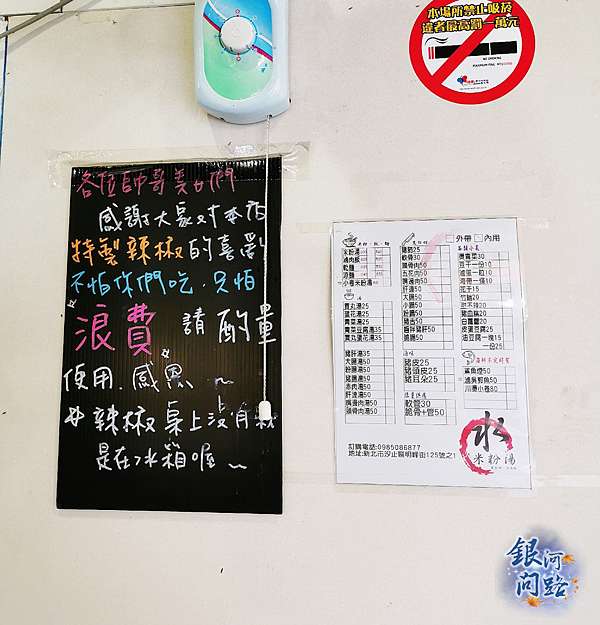 本場所禁止吸菸
違者最高罰一萬元
NO SMOKING
各位帥哥美女們
感謝大家對本店
特製辣椒的喜愛
不怕你們吃,只怕
浪費 請酌量
使用.感恩~
辣椒桌上沒有就
是在冰箱喔~
外帶 內用
米粉湯
滷肉飯
乾麵
涼麵
小卷米粉湯
貢丸湯25
蛋花湯25
青菜湯25
青菜豆腐湯35
貢丸蛋花湯35
豬肝湯35
大腸湯50
粉腸湯50
豬腸湯50
赤肉湯50
肝連湯50
嘴邊肉湯50
頭骨肉湯50
豬肺25
軟骨30
頭骨肉50
五花肉50
嘴邊肉50
肝連50
大腸50
小腸50
粉腸50
豬舌50
脆骨50
豬皮25
豬頭皮25
豬耳朵25
軟管30
脆骨+管50
燙青菜30
豆干一份10
滷蛋一粒10
海帶一條10
皮蛋豆腐25
油豆腐一塊15
一份25
鯊魚煙50
川燙小卷80
水
米粉湯
訂購電話:0985086877
地址:新北市汐止區明峰街125號之1
銀河
問路